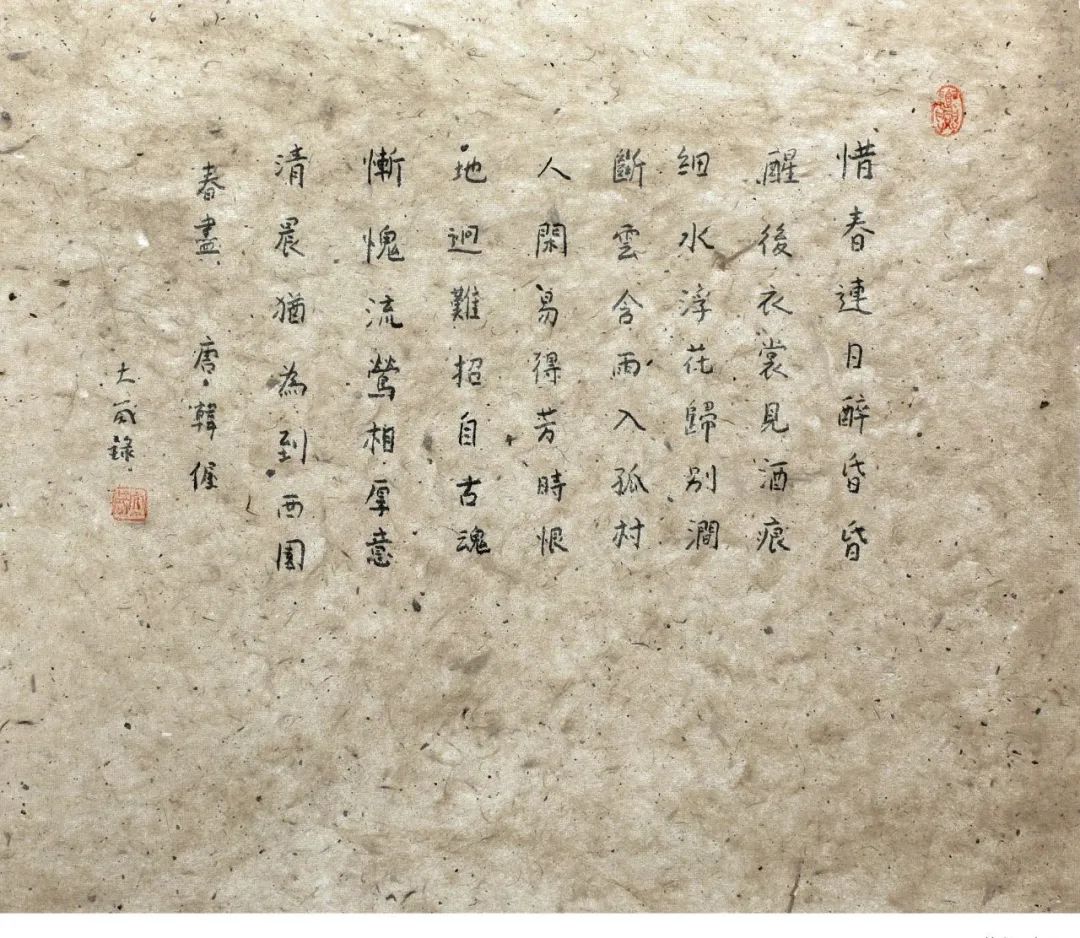 惜春連日醉昏昏
醒後衣裳見酒痕
細水浮花歸別澗
斷雲含雨入孤村
人閑易得芳時恨
地迥難招自古魂
慚愧流鶯相厚意
清晨猶為到西園
春盡 唐 韓偓
大 錄